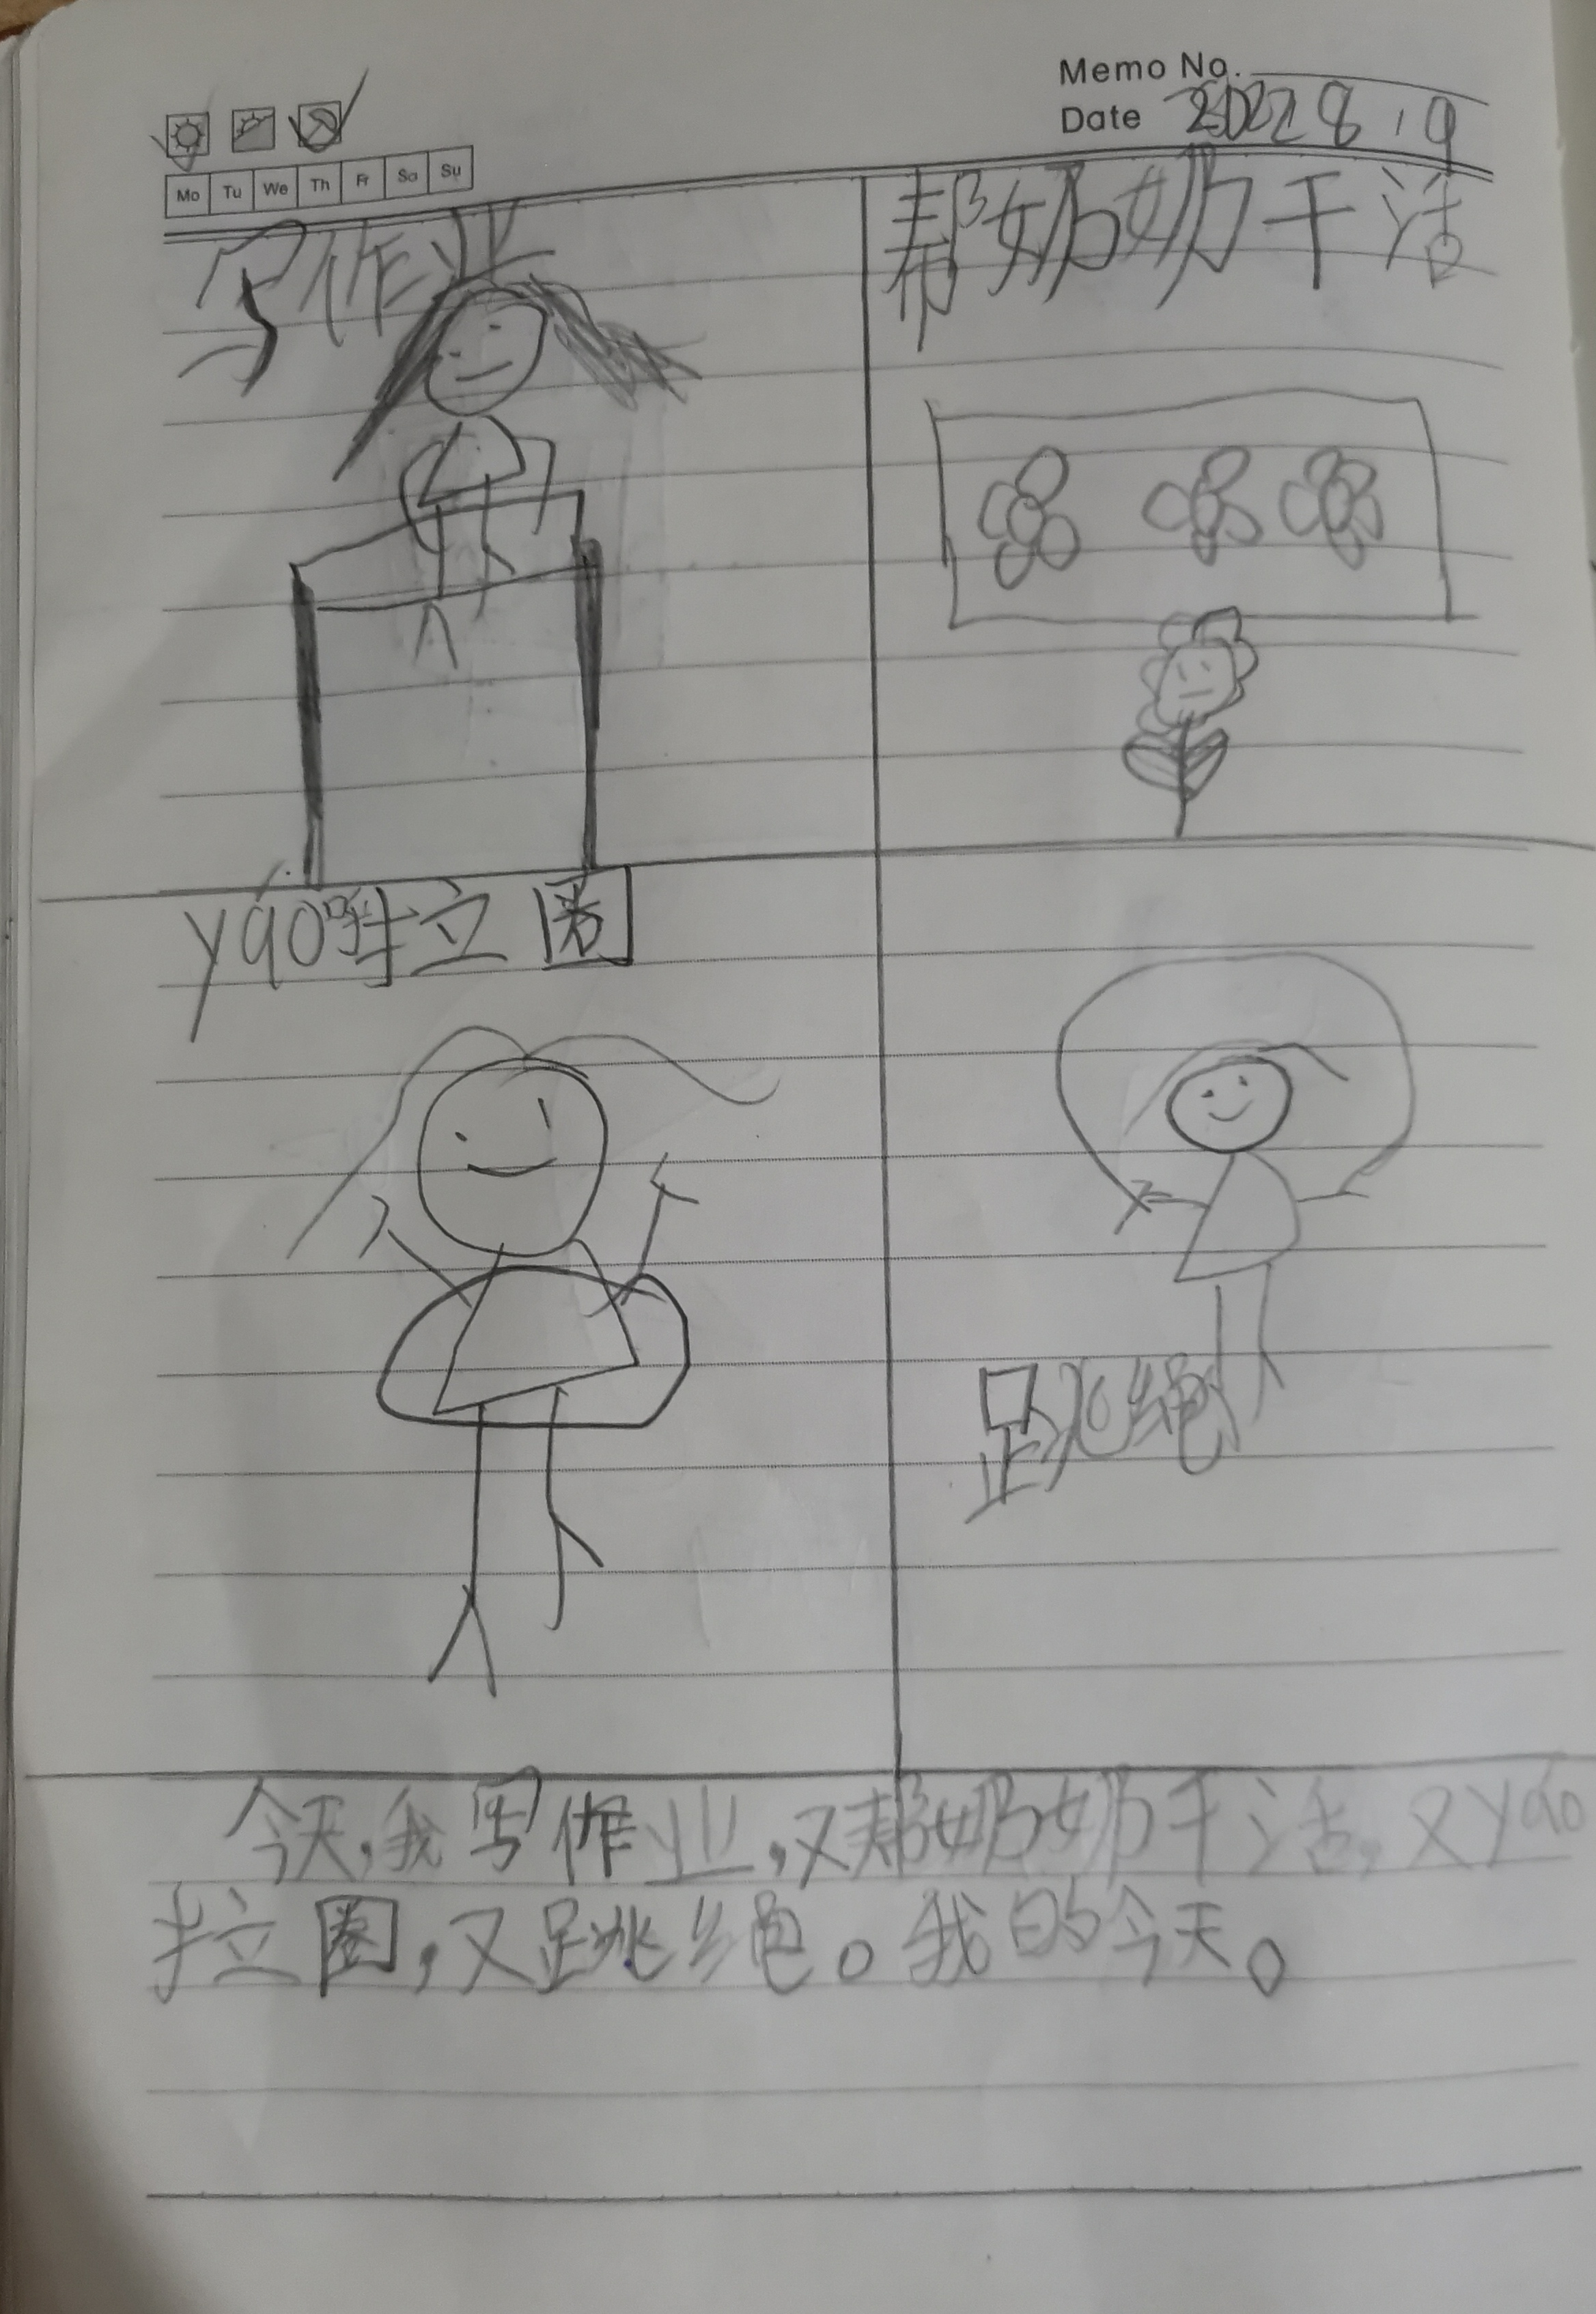 Memo No.
Date 2022 8.9
Mo Tu We Th Fr Sa Su
写作业
帮奶奶干活
yáo啦立圈
跳绳
今天,我写作业,又帮奶奶干活,又yáo
拉圈,又跳绳。我的今天。